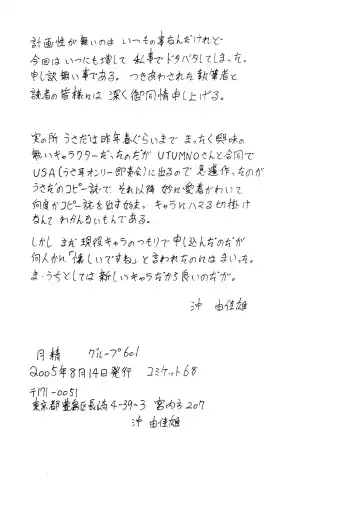 計画性が無いのは いつもの事なんだけれど
今回は いつにも増して 私事で ドタバタしてしまった。
申し訳無い事である。 つきあわされた執筆者と
読者の皆様には 深く御同情申し上げる。
実の所 うさだは昨年春ぐらいまで まったく興味の
無いキャラクターだったのだが UTUMNOさんと合同で
USA(うさ耳オンリー即売会)に出るので 急遽作ったのが
うさだのコピー誌で それ以降 妙に愛着がわいて
何度かコピー誌を出す始末。 キャラにハマる切掛け
なんて わかんないもんである。
しかし まだ現役キャラのつもりで 申し込んだのだが
何人かに「懐しいですね」と言われたのにはまいった。
ま、うちとしては 新しいキャラだから良いのだが。
沖 由佳雄
月精 グループ601
2005年8月14日発行 コミケット68
〒171-0051
東京都豊島区長崎4-39-3 宮内方207
沖 由佳雄